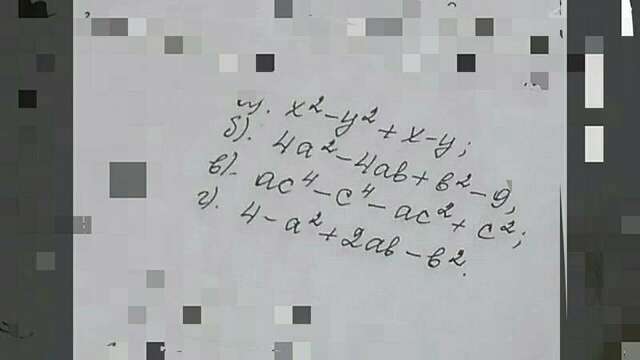 а). x² - y² + x - y;
б). 4a² - 4ab + b² - 9;
в). ac⁴ - c⁴ - ac² + c²;
г). 4 - a² + 2ab - b².